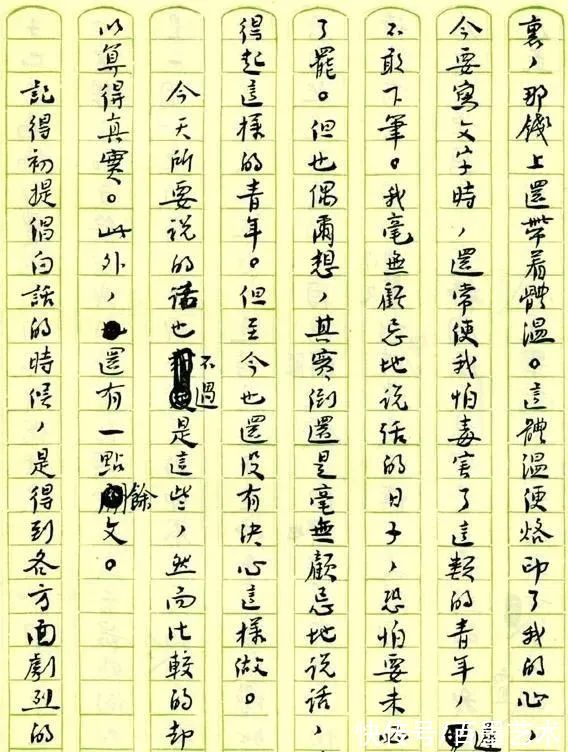 裏，那錢上還帶着體溫。這體溫便烙印了我的心，
今要寫文字時，還常使我怕毒害了這類的青年，
不敢下筆。我毫無顧忌地說話的日子，恐怕要未必
了罷。但也偶爾想，其實倒還是毫無顧忌地說話，
得起這樣的青年。但至今也還沒有決心這樣做。
今天所要說的話也不過是這些，然而比較的却
以算得真實。此外，還有一點餘文。
記得初提倡白話的時候，是得到各方面劇烈的
快资号/古墨艺术